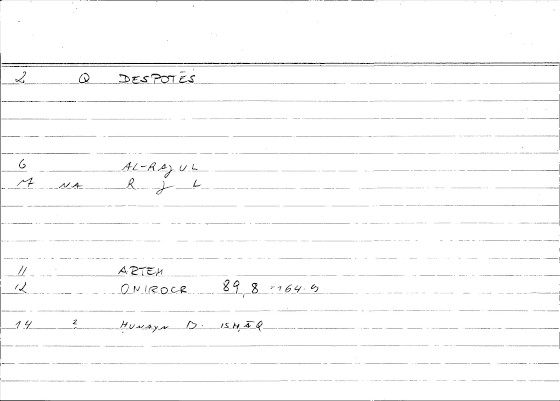 2 Q DESPOTĒS
6 AL-RAJUL
M NA R J L
11 ARTEM
12 ONIROCR. 89,8 164.9
14 2 HUNAYN B. ISḤĀQ